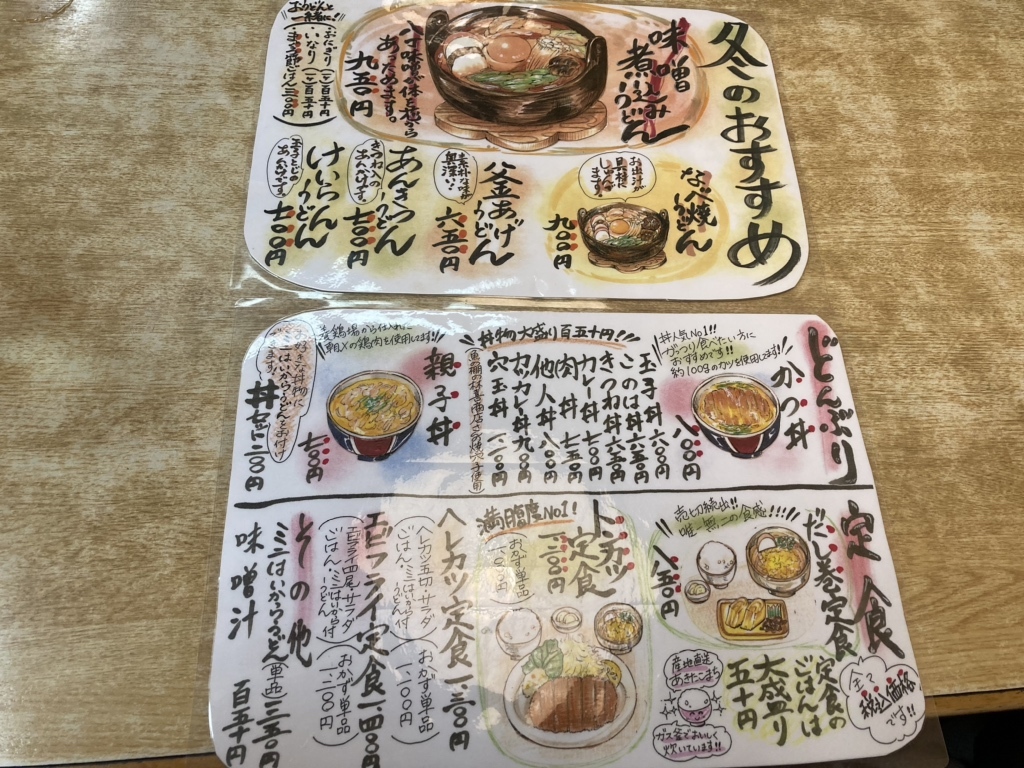 冬のおすすめ
味噌
煮込み
うどん
八丁味噌が体を芯から
あっためます。
九五〇円
おうどんと
一緒に!
おにぎり(二ヶ)百五十円
いなり(二ヶ)百五十円
なべ焼
うどん
お出汁が
具材に
しみこんで
ます。
九〇〇円
釜あげ
うどん
素朴な味が
奥深い!
六五〇円
あんきつ
うどん
きつね入の
あんかけです。
七〇〇円
けいらん
うどん
玉子とじの
あんかけです。
七〇〇円
どんぶり
かつ丼
丼人気No1!!
がっつり食べたい方に
おすすめです!!
約100gのカツを使用してます!
八〇〇円
丼物の大盛り百五十円!!
玉子丼 六〇〇円
このは丼 六五〇円
きつね丼 六五〇円
カレー丼 七〇〇円
肉丼 七五〇円
他人丼 八〇〇円
カツカレー丼 九〇〇円
穴玉丼 一一〇〇円
親子丼
朝〆の鶏肉を使用してます!
七〇〇円
お好きな丼物に
ミニはいからうどんをお付け
できます
丼セット 二〇〇円
定食
だし巻定食
売切続出!!
唯一無二の食感!!!
八五〇円
定食の
ごはんは
大盛り
五十円
産地直送
あきたこまち
ガス釜でおいしく
炊いています!!
全て
税込価格
です!!
トンカツ
定食
満腹度No1!
一三〇〇円
ヘレカツ定食 一三〇〇円
ヘレカツ五切・サラダ
ごはん・ミニはいから
うどん付
おかず単品
一一〇〇円
エビフライ定食 一四〇〇円
エビフライ四尾・サラダ
ごはん・ミニはいから
うどん付
おかず単品
一二〇〇円
その他
ミニはいからうどん(単品)三五〇円
味噌汁 百五十円